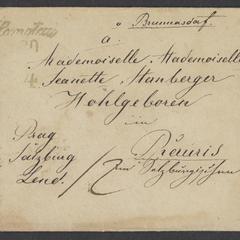 Komotau
à Brunnersdorf.
a.
Mademoiselle, Mademoiselle
Jeanette Hanberger
Wohlgeboren
in
Prag
Salzburg
Lend.
Rauris
im Salzburgischen